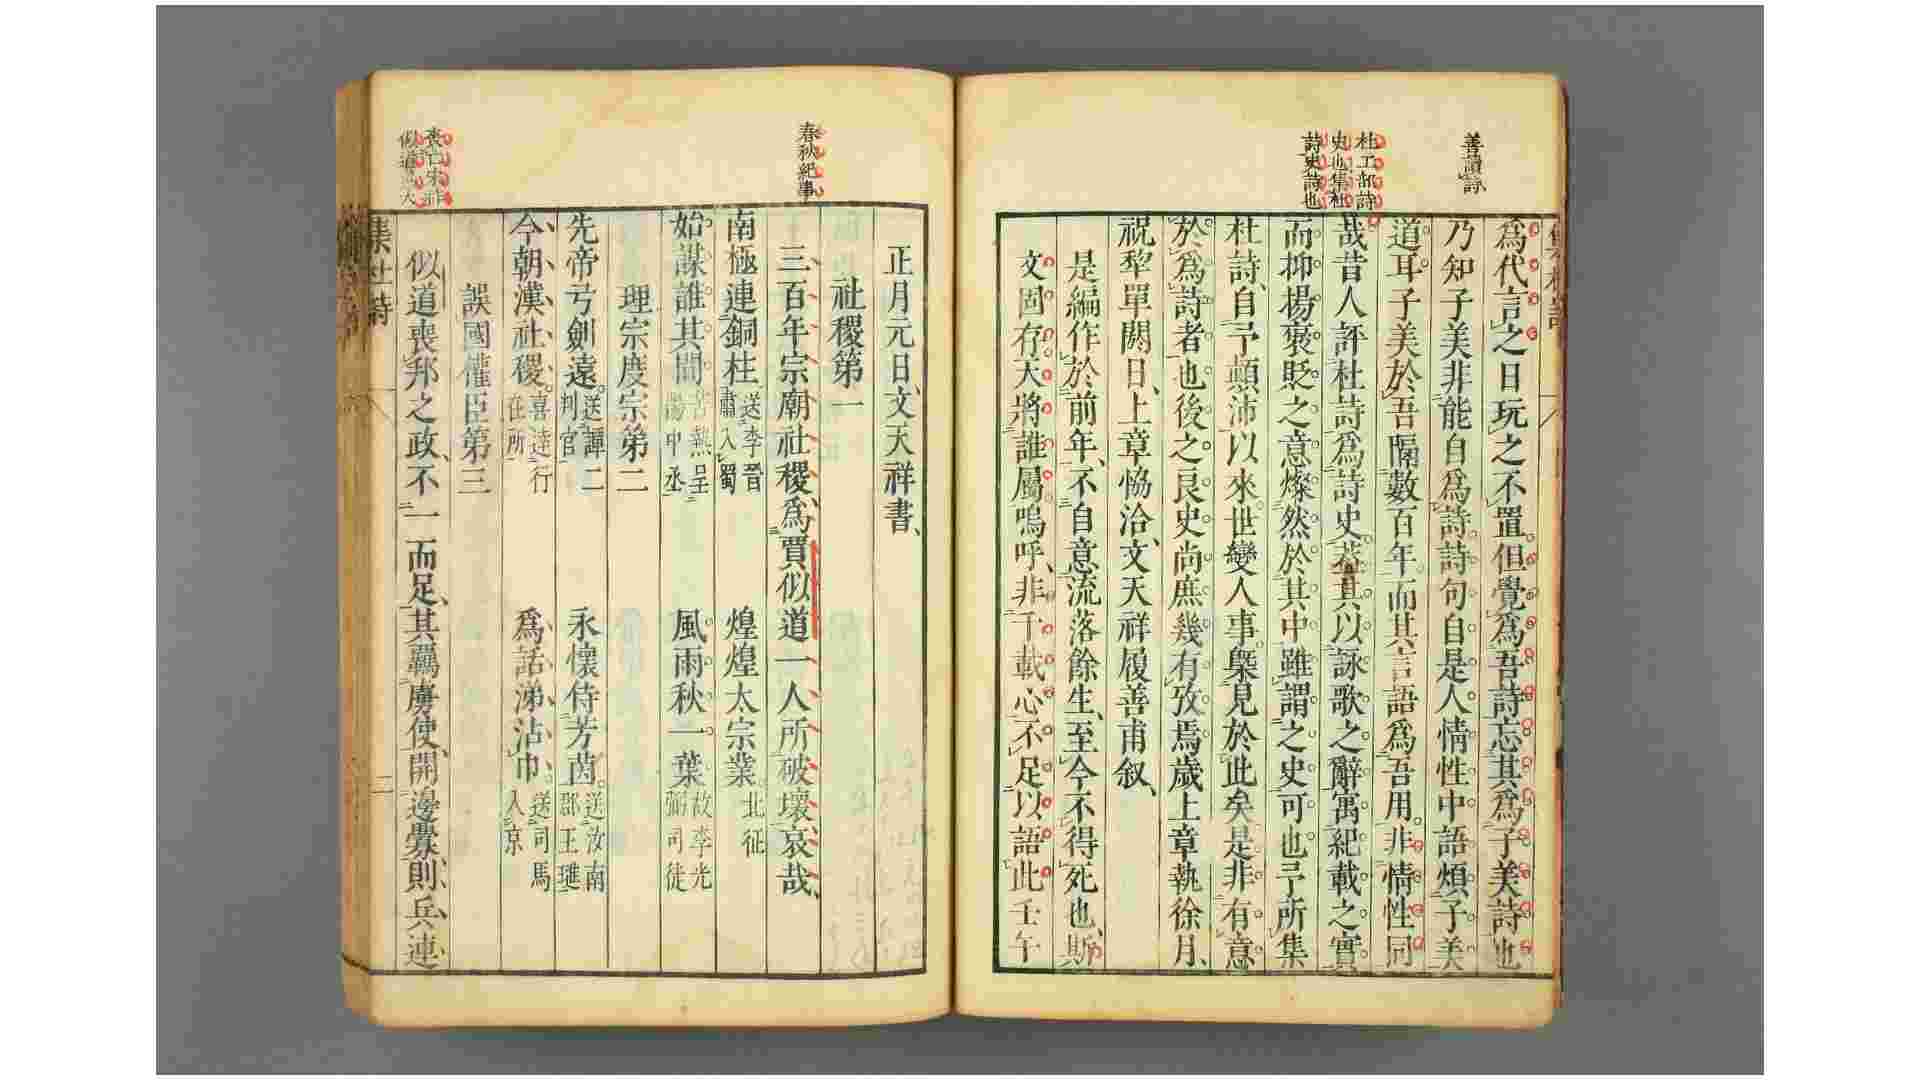 善讀詩
杜工部詩
史也集杜
詩史詩也
為代言之日玩之不置但覺為吾詩忘其為子美詩也
乃知子美非能自為詩詩句自是人情性中語煩子美
道耳子美於吾隔數百年而其言語為吾用非情性同
哉昔人評杜詩為詩史蓋其以詠歌之辭寓紀載之實
而抑揚褒貶之意燦然於其中雖謂之史可也予所集
杜詩自予顛沛以來世變人事槩見於此矣是非有意
於為詩者也後之良史尚庶幾有攷焉歲上章執徐月
祝犂單閼日上章恊洽文天祥履善甫叙
是編作於前年不自意流落餘生至今不得死也斯
文固存天將誰屬嗚呼非千載心不足以語此壬午
春秋紀事
喪亡宋非
似道
正月元日文天祥書
社稷第一
三百年宗廟社稷為賈似道一人所破壞哀哉
南極連銅柱 送李晉肅入蜀 煌煌太宗業 北征
始謀誰其間 苦熱呈陽中丞 風雨秋一葉 故李光弼司徒
理宗度宗第二
先帝弓劍遠 送譚二判官 永懷侍芳茵 送汝南郡王璡
今朝漢社稷 喜達行在所 為話涕沾巾 送司馬入京
誤國權臣第三
似道喪邦之政不一而足其羈虜使開邊釁則兵連
集杜詩
二